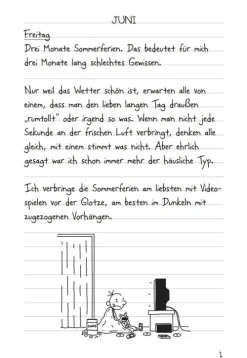 JUNI
Freitag
Drei Monate Sommerferien. Das bedeutet für mich
drei Monate lang schlechtes Gewissen.
Nur weil das Wetter schön ist, erwarten alle von
einem, dass man den lieben langen Tag draußen
„rumtollt" oder irgend so was. Wenn man nicht jede
Sekunde an der frischen Luft verbringt, denken alle
gleich, mit einem stimmt was nicht. Aber ehrlich
gesagt war ich schon immer mehr der häusliche Typ.
Ich verbringe die Sommerferien am liebsten mit Video-
spielen vor der Glotze, am besten im Dunkeln mit
zugezogenen Vorhängen.
1